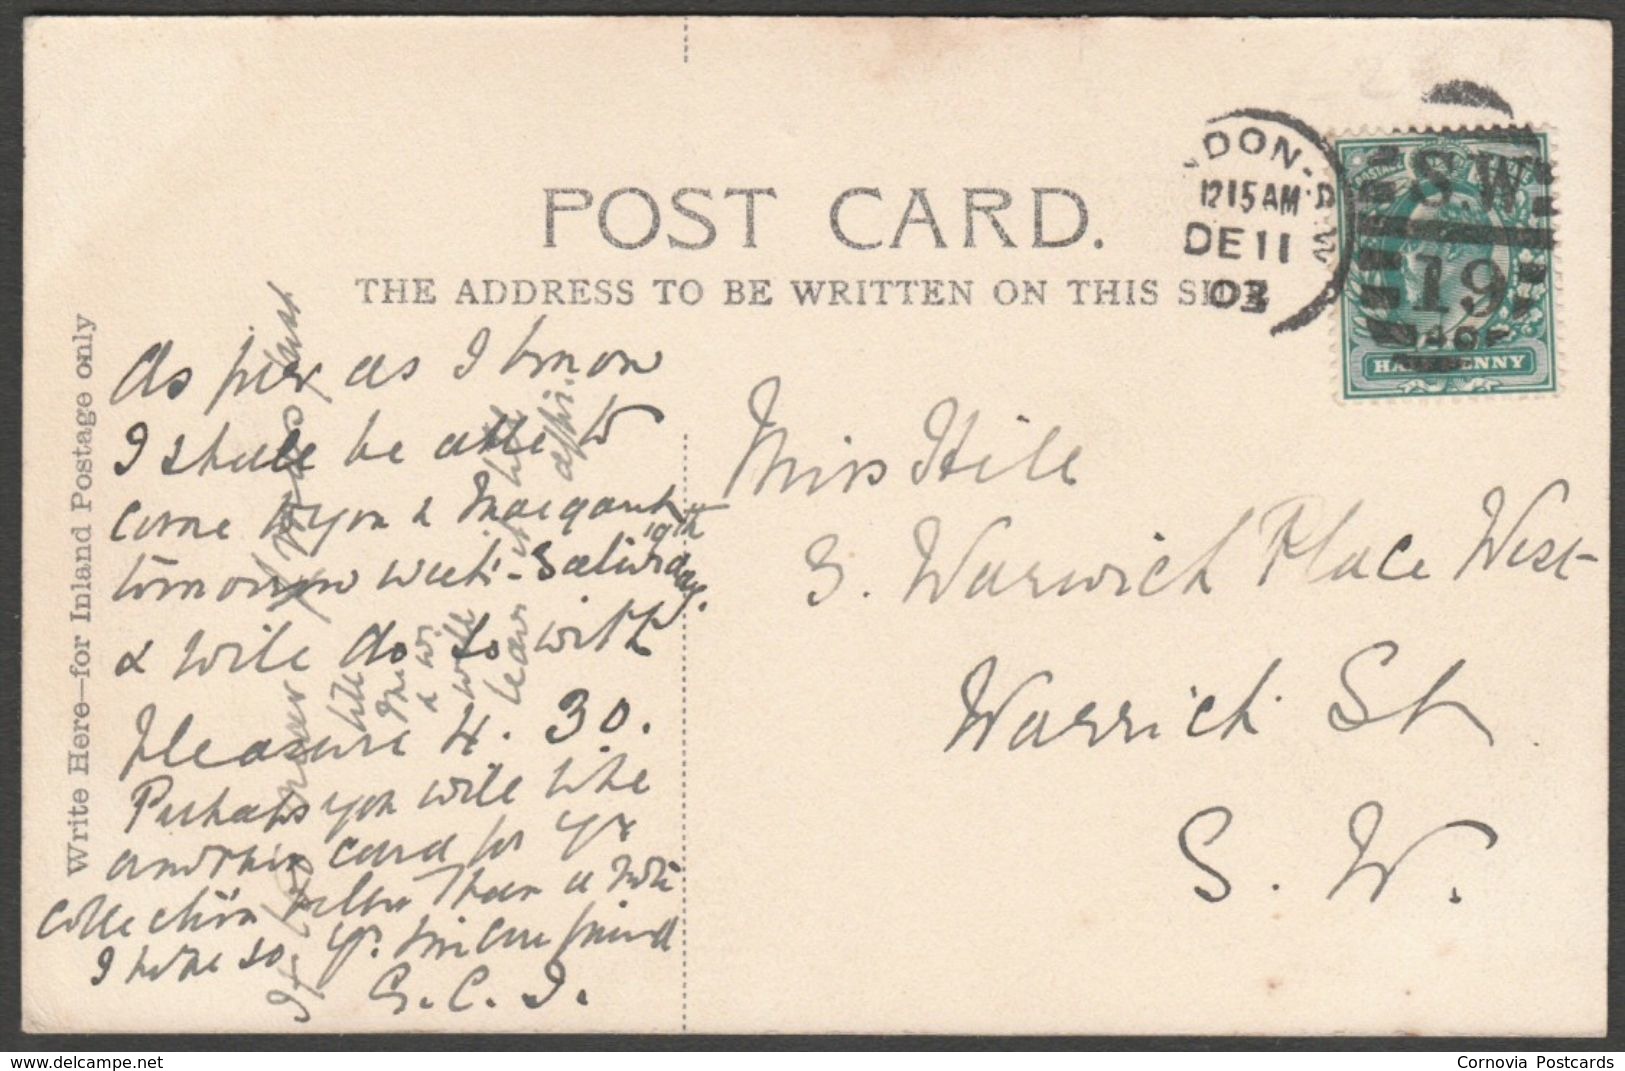 POST CARD.
THE ADDRESS TO BE WRITTEN ON THIS SIDE
Write Here—for Inland Postage only
DON.
12 15 AM
DE 11
03
S.W
19
POSTAGE
HALFPENNY
As far as I know
I shall be able to
come to you & Margaret
tomorrow week - Saturday 19th
& will do so with
pleasure 4.30.
Perhaps you will like
another card for yr
collection rather than a note
I hope so Yr. sincere friend
G.C.I.
Miss Hill
3. Warwich Place West
Warrick St
S.W.
www.delcampe.net
Cornovia Postcards